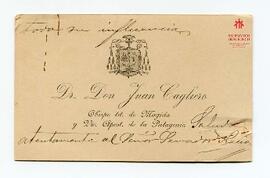 toda su influencia
Dr. Don Juan Cagliero
Obispo tit. de Magida
y Vic. Apost. de la Patagonia Saluda
atentamente al Señor